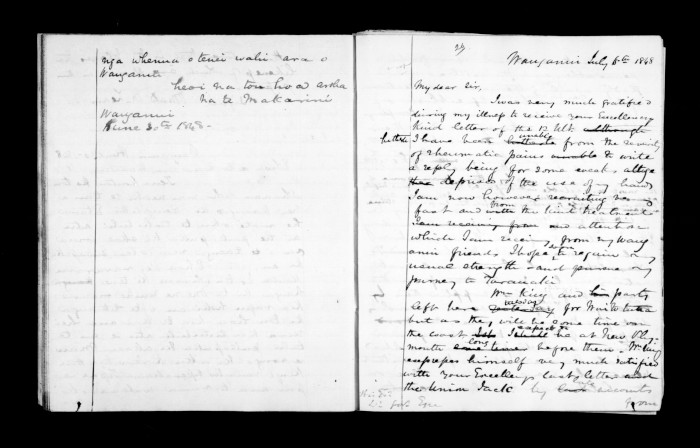 nga whenua o tenei wahi ara o
Wanganui
heoi na tou hoa aroha
na te Makarini
Wanganui
June 30th 1848-
27
Wanganui July 6th 1848
My dear Sir,
I was very much gratified
during my illness to receive your Excellency's
kind letter of the 12 Ulto although
hitherto I have been unable from the severity
of rheumatic pains unable to write
a reply being for some weeks
deprived of the use of my hands
I am now however recruiting very
fast and from with the kind treatment
I am receiving from and attention
which I am receiving from my Wang
anui friends I hope soon to regain my
usual strength and pursue my
journey to Taranaki
Mr King and his party
left here yesterday for Waitotara
but as they will be some time on
the coast I expect to be at New Ply-
mouth some time long before them. Mr King
expresses himself very much satisfied
with your Excellency's last letter and
the Union Jack by accounts
from
His Ex.
Lt. Govr Eyre